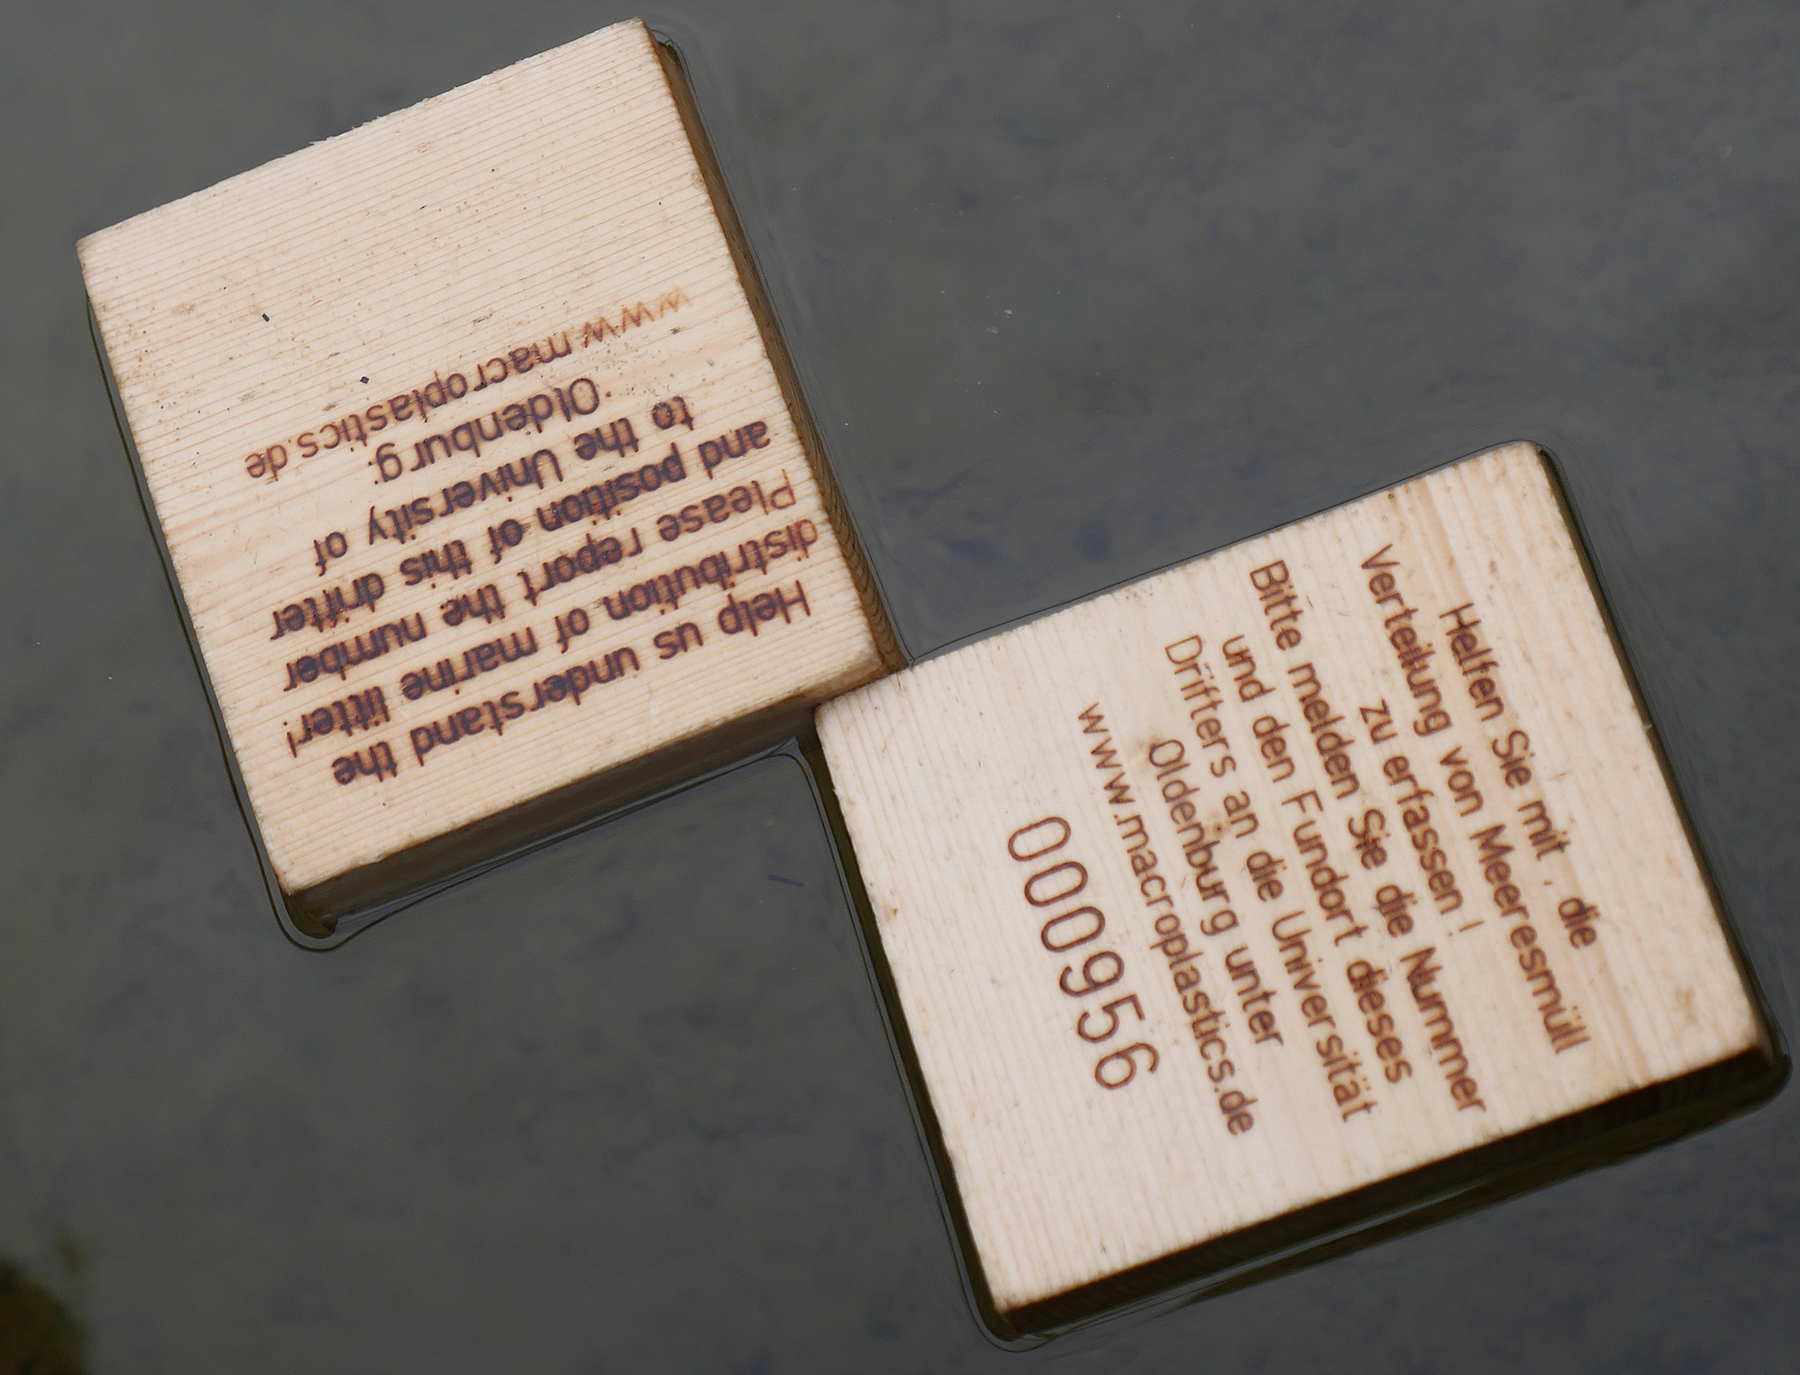 Help us understand the
distribution of marine litter!
Please report the number
and position of this drifter
to the University of
Oldenburg:
www.macroplastics.de
Helfen Sie mit , die
Verteilung von Meeresmüll
zu erfassen !
Bitte melden Sie die Nummer
und den Fundort dieses
Drifters an die Universität
Oldenburg unter
www.macroplastics.de
000956